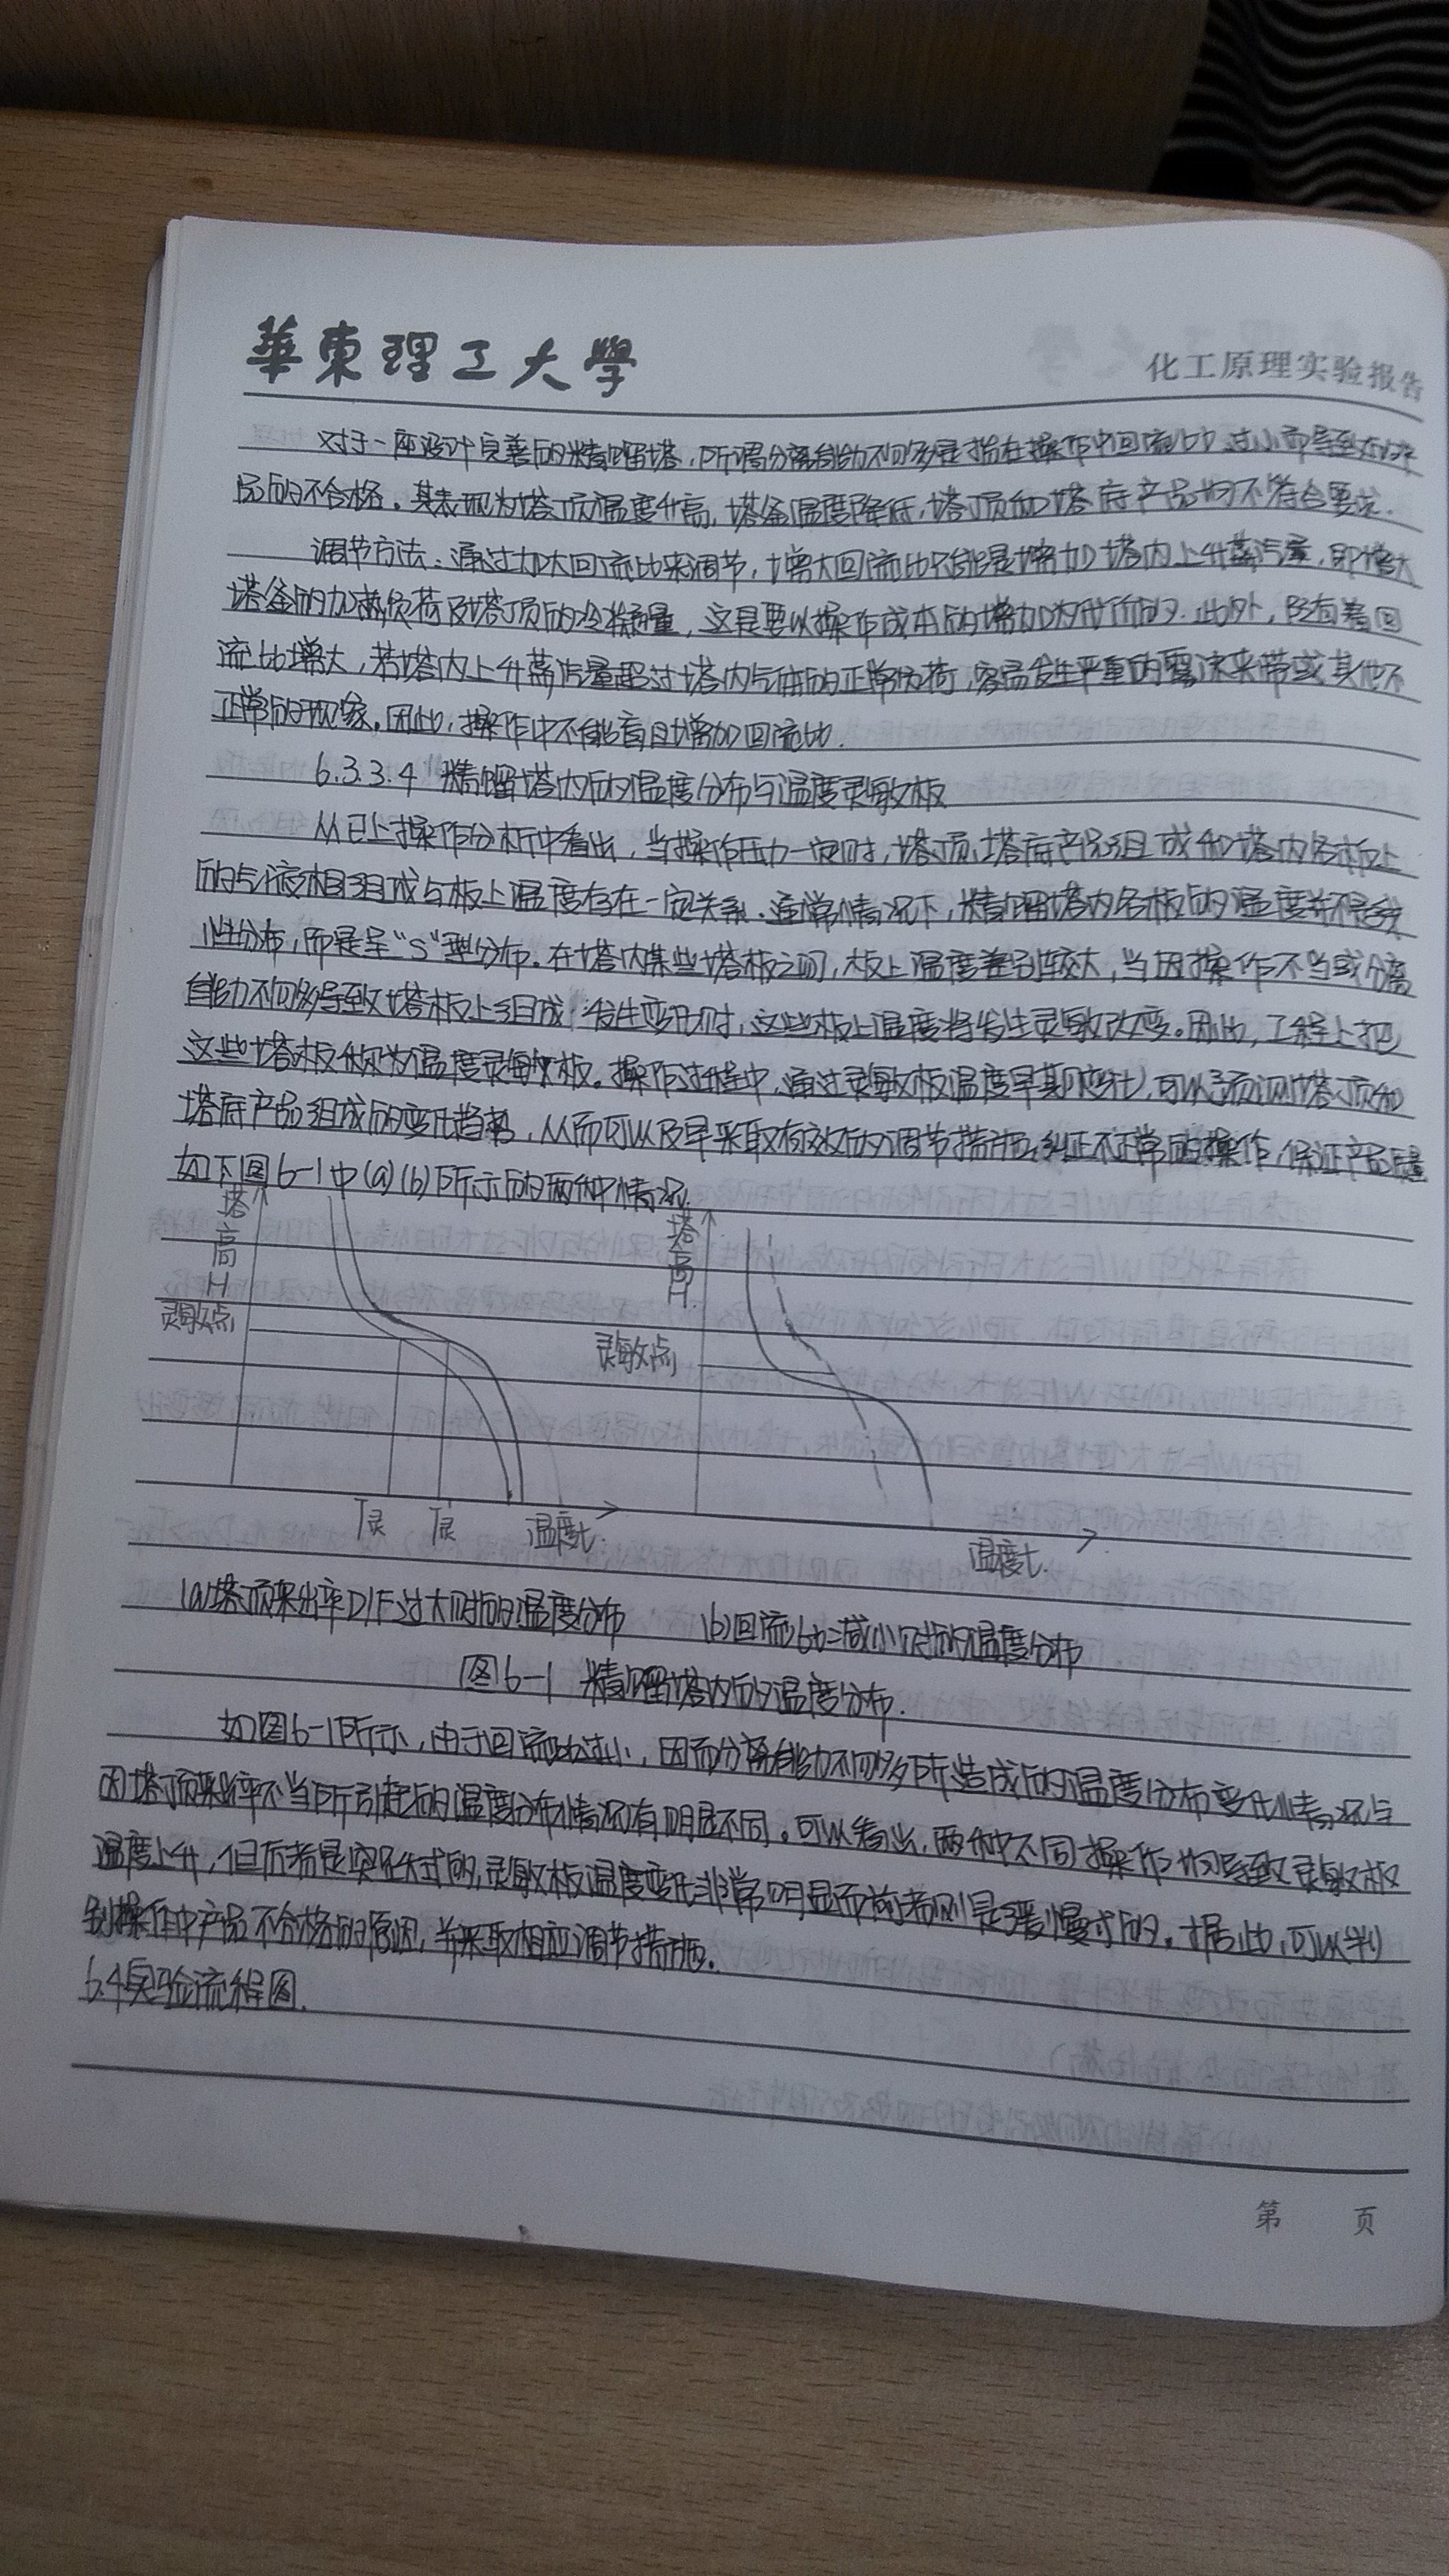 華東理工大學
化工原理实验报告
对于一座设计完善的精馏塔,所谓分离能力不够是指在操作中回流比过小而导致的产
品的不合格。其表现为塔顶温度升高,塔釜温度降低,塔顶和塔底产品均不符合要求.
调节方法:通过加大回流比来调节,增大回流比只能是增加塔内上升蒸汽量,即增大
塔釜的加热负荷及塔顶的冷凝量,这是要以操作成本的增加为代价的.此外,随着回
流比增大,若塔内上升蒸汽量超过塔内气体的正常负荷,容易发生严重的雾沫夹带或其他不
正常的现象.因此,操作中不能盲目增加回流比.
6.3.3.4 精馏塔内的温度分布与温度灵敏板
从已上操作分析中看出,当操作压力一定时,塔顶、塔底产品组成和塔内各板上
的气液相组成与板上温度存在一定关系.通常情况下,精馏塔内各板的温度并不是线
性分布,而是呈“S”型分布。在塔内某些塔板之间,板上温度差别较大,当因操作不当或分离
能力不够导致塔板上组成发生变化时,这些板上温度将发生灵敏改变。因此,工程上把
这些塔板称为温度灵敏板。操作过程中,通过灵敏板温度早期变化,可以预测塔顶和
塔底产品组成的变化趋势,从而可以及早采取有效的调节措施,纠正不正常的操作,保证产品质量
如下图6-1中(a)(b)所示的两种情况.
塔高H
灵敏点
T灵
T灵
温度t.
塔高H.
灵敏点
温度t.
(a)塔顶采出率D/F过大时的温度分布
(b)回流比减小时的温度分布
图6-1 精馏塔内的温度分布.
如图6-1所示,由于回流比过小,因而分离能力不够所造成的温度分布变化情况与
因塔顶采出率不当所引起的温度分布情况有明显不同。可以看出,两种不同操作均导致灵敏板
温度上升,但后者是突跃式的,灵敏板温度变化非常明显而前者则是缓慢式的。据此,可以判
别操作中产品不合格的原因,并采取相应调节措施.
6.4实验流程图.
第 页